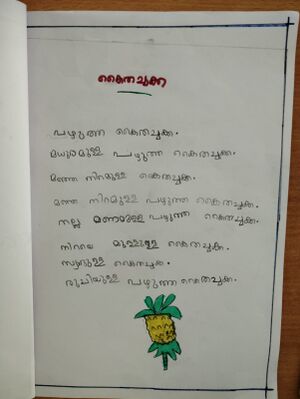 കൈതച്ചക്ക
പഴുത്ത കൈതച്ചക്ക.
മധുരമുള്ള പഴുത്ത കൈതച്ചക്ക.
മഞ്ഞ നിറമുള്ള കൈതച്ചക്ക.
മഞ്ഞ നിറമുള്ള പഴുത്ത കൈതച്ചക്ക.
നല്ല മണമുള്ള പഴുത്ത കൈതച്ചക്ക.
നിറയെ മുള്ളുള്ള കൈതച്ചക്ക.
സ്വാദുള്ള കൈതച്ചക്ക.
രുചിയുള്ള പഴുത്ത കൈതച്ചക്ക.